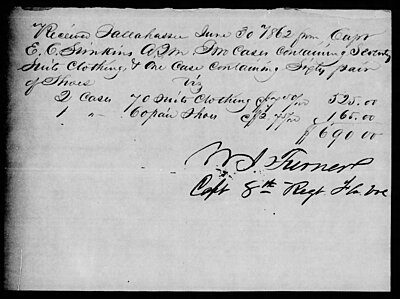 Received Tallahassee June 30th 1862 from Capt
E. C. Simkins A.Q.M. Two Cases Containing Seventy
Suits Clothing & One Case Containing Sixty pair
of Shoes viz
2 Cases 70 Suits Clothing @ 7 50/100 525.00
1 " 60 pair Shoes @ 2 75/100 165.00
$690.00
W J Turner
Capt 8th Regt Fla Vol